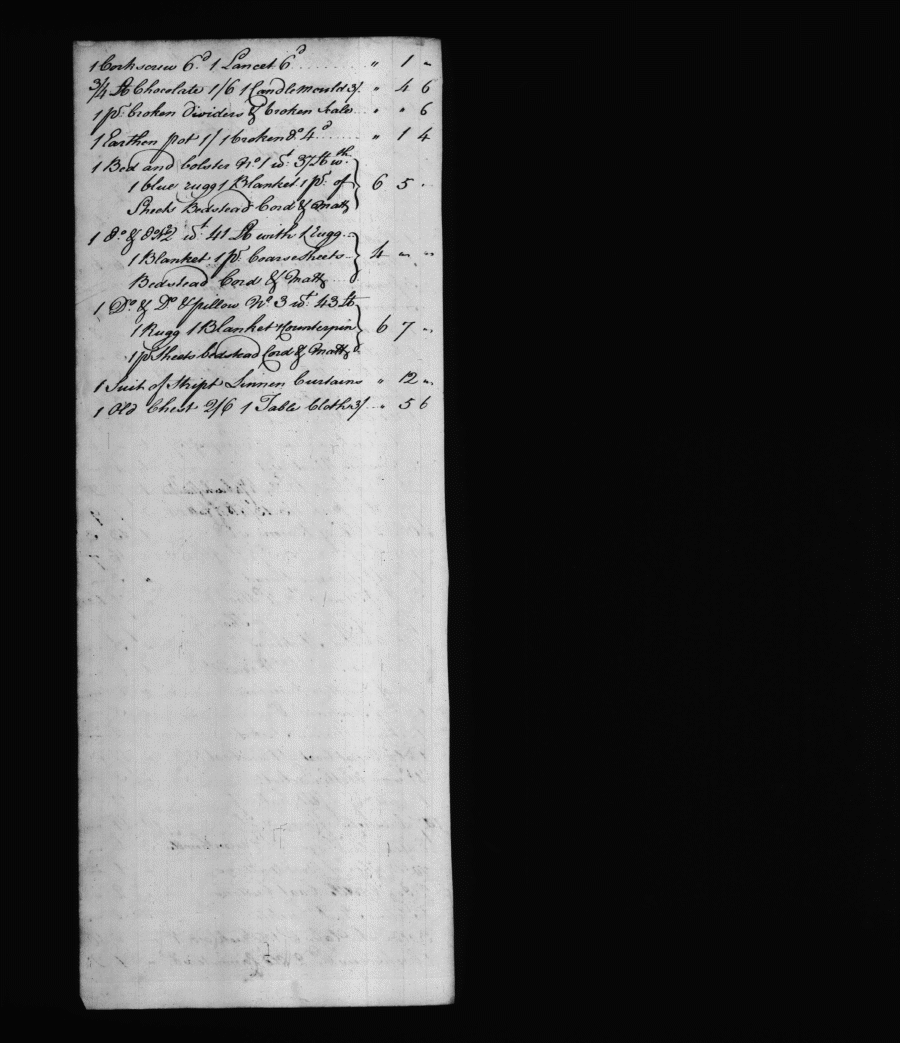 1 Corkscrew 6d 1 Lancet 6d ........ " 1 "
3/4 lb Chocolate 1/6 1 Candlemould 3/. " 4 6
1 pr. broken Dividers & broken Scale.. " " 6
1 Earthen pot 1/ 1 broken Do 4d ...... " 1 4
1 Bed and bolster No. 1 wt. 37 lb wth.
1 blue rugg 1 Blanket 1 pr. of } 6 5 "
Sheets Bedstead Cord & Matt
1 Do. & Do No 2 wt. 41 lb with 1 Rugg..
1 Blanket 1 pr. Coarse Sheets.. } 4 " "
Bedstead Cord & Matt
1 Do. & Do & pillow No 3 wt. 43 lb
1 Rugg 1 Blanket 1 Counterpin } 6 7 "
1 p Sheets bedstead Cord & Matt
1 Suit of Stript Linnen Curtains " 12 "
1 Old Chest 2/6 1 Table Cloth 3/ .. " 5 6